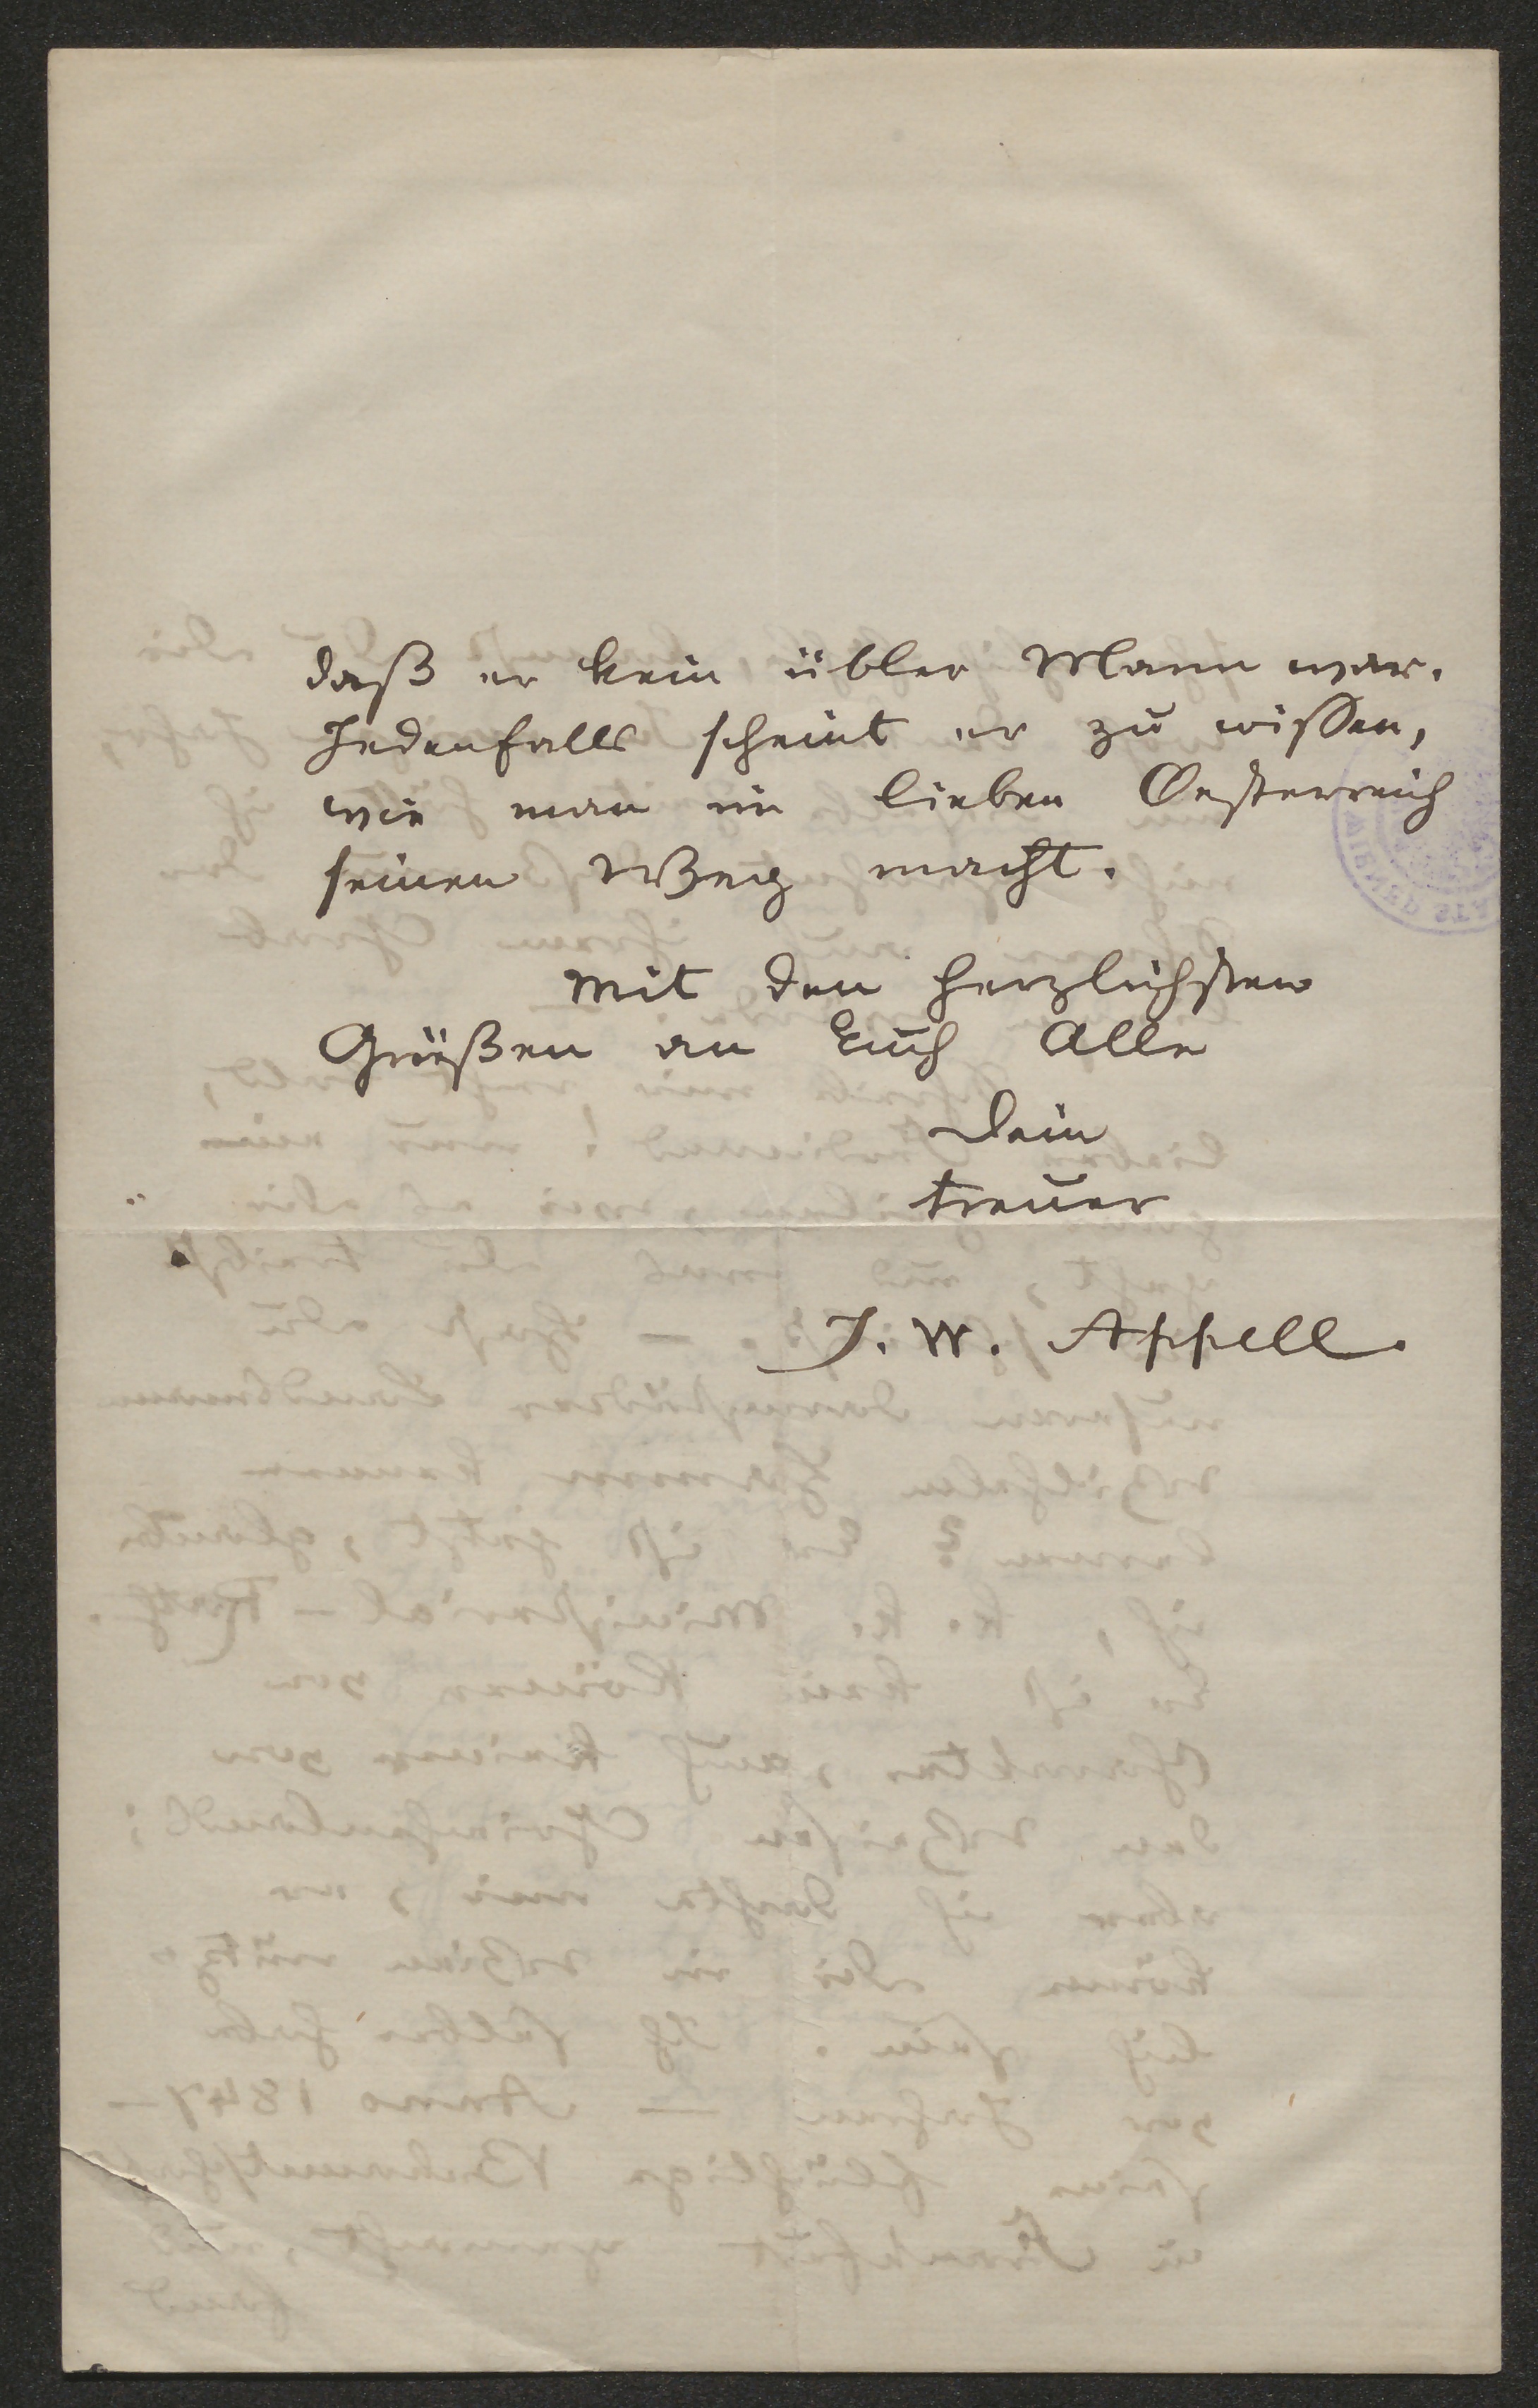 daß er kein übler Mann war.
Jedenfalls scheint er zu wissen,
wie man im lieben Oesterreich
seinen Weg macht.
Mit den herzlichsten
Grüßen an Euch Alle
Dein
treuer
J. W. Appell.